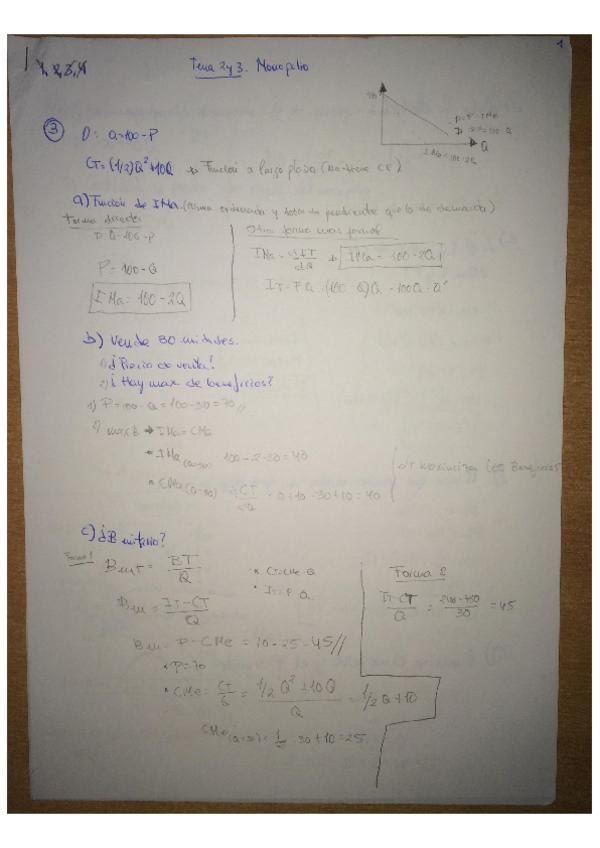 1
1, 2, 3, 4
Tema 2 y 3. Monopolio
③ D: Q=100-P
CT=(1/2)Q²+10Q → Función a largo plazo (No tiene CF)
Q
IMa=100-2Q
a) Función de IMa (misma ordenada y doble de pendiente que la de demanda)
Forma directa
D: Q=100-P
P=100-Q
IMa=100-2Q
Otra forma más formal
IMa = dIT/dQ → IMa = 100-2Q
IT=P·Q=(100-Q)Q=100Q-Q²
b) Vende 30 unidades.
1) ¿Precio de venta?
2) ¿Hay max de beneficios?
1) P=100-Q=100-30=70//
2) max B → IMa=CMa
• IMa(Q=30) 100-2·30=40
• CMa(Q=30) = CT/dQ = Q+10 = 30+10=40
Sí maximiza los Beneficios
c) ¿B unitario?
Forma 1
Bunit = BT/Q
• CT=CMe·Q
• IT=P·Q
Bu = IT-CT/Q
Bu = P-CMe = 70-25=45//
• P=70
• CMe = CT/Q = 1/2Q²+10Q/Q = 1/2Q+10
CMe(Q=30)=1/2·30+10=25
Forma 2
IT-CT/Q = 2100-750/30 = 45